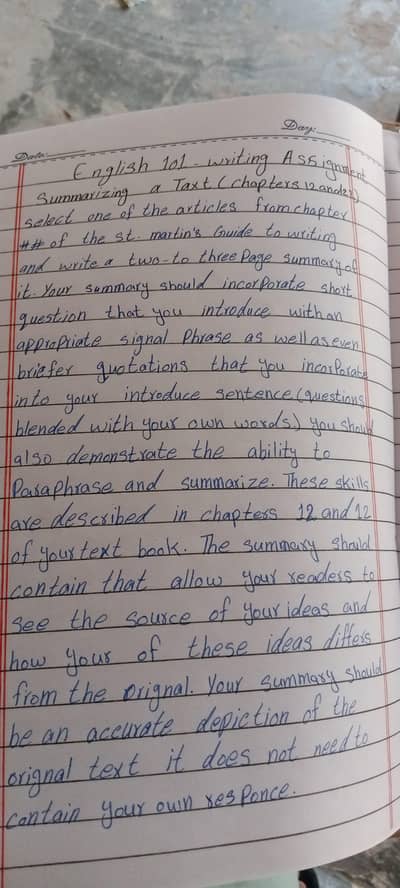 Day:
Date:
English 101 - writing Assignment
Summarizing a Taxt (chapters 12 and 12)
select one of the articles from chapter
## of the st. martin's Guide to writing
and write a two-to three Page summary of
it. Your summary should incorporate short
question that you introduce with an
appropriate signal Phrase as well as even
briefer quotations that you incorporate
into your introduce sentence (questions
blended with your own words) you should
also demonstrate the ability to
Paraphrase and summarize. These skills
are described in chapters 12 and 12
of your text book. The summary should
contain that allow your readers to
see the source of your ideas and
how your of these ideas differs
from the orignal. Your summary should
be an accurate depiction of the
orignal text it does not need to
contain your own responce.